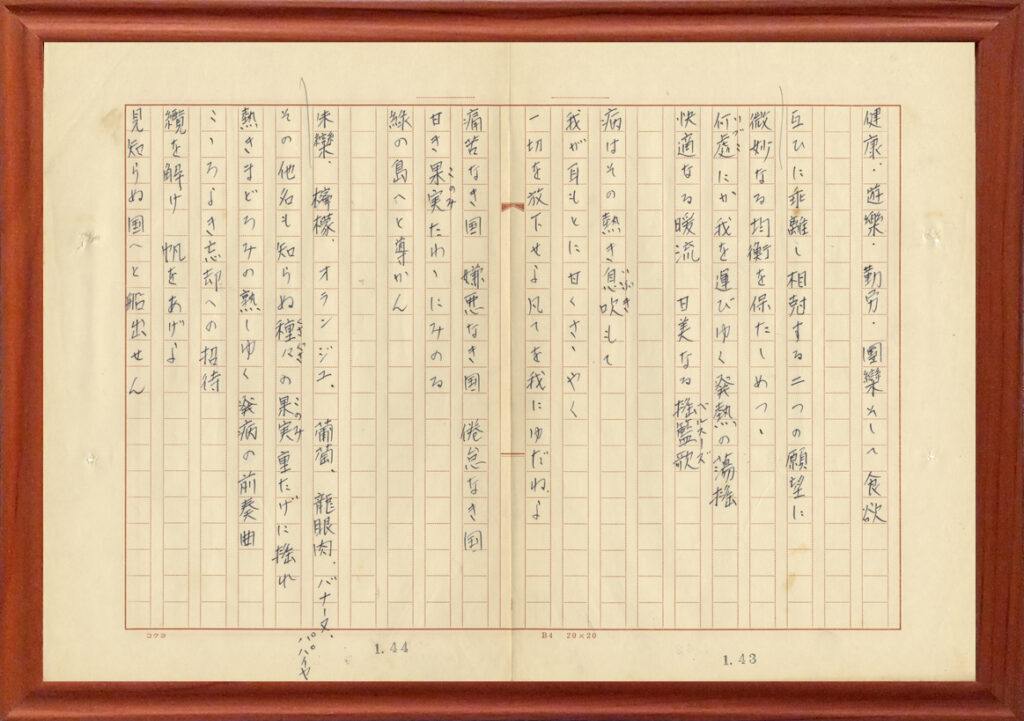 健康・遊樂・勤労・團欒そして食欲
互ひに乖離し相尅する二つの願望に
微妙なる均衡を保たしめつゝ
何處にか我を運びゆく発熱の蕩揺
いづこ
快適なる暖流　甘美なる揺籃歌
ベルスーズ
病はその熱き息吹もて
いぶき
我が耳もとに甘くさゝやく
一切を放下せよ凡てを我にゆだねよ
痛苦なき国　嫌悪なき国　倦怠なき国
甘き果実たわゝにみのる
このみ
緑の島へと導かん
朱欒、檸檬、オランジユ、葡萄、龍眼肉、バナーヌ、パパイヤ
その他名も知らぬ種々の果実重たげに揺れ
くさぐさ　このみ
熱きまどろみの熟しゆく発病の前奏曲
こゝろよき忘却への招待
纜を解け　帆をあげよ
見知らぬ国へと船出せん
B4 20×20
1.43
コクヨ
1.44